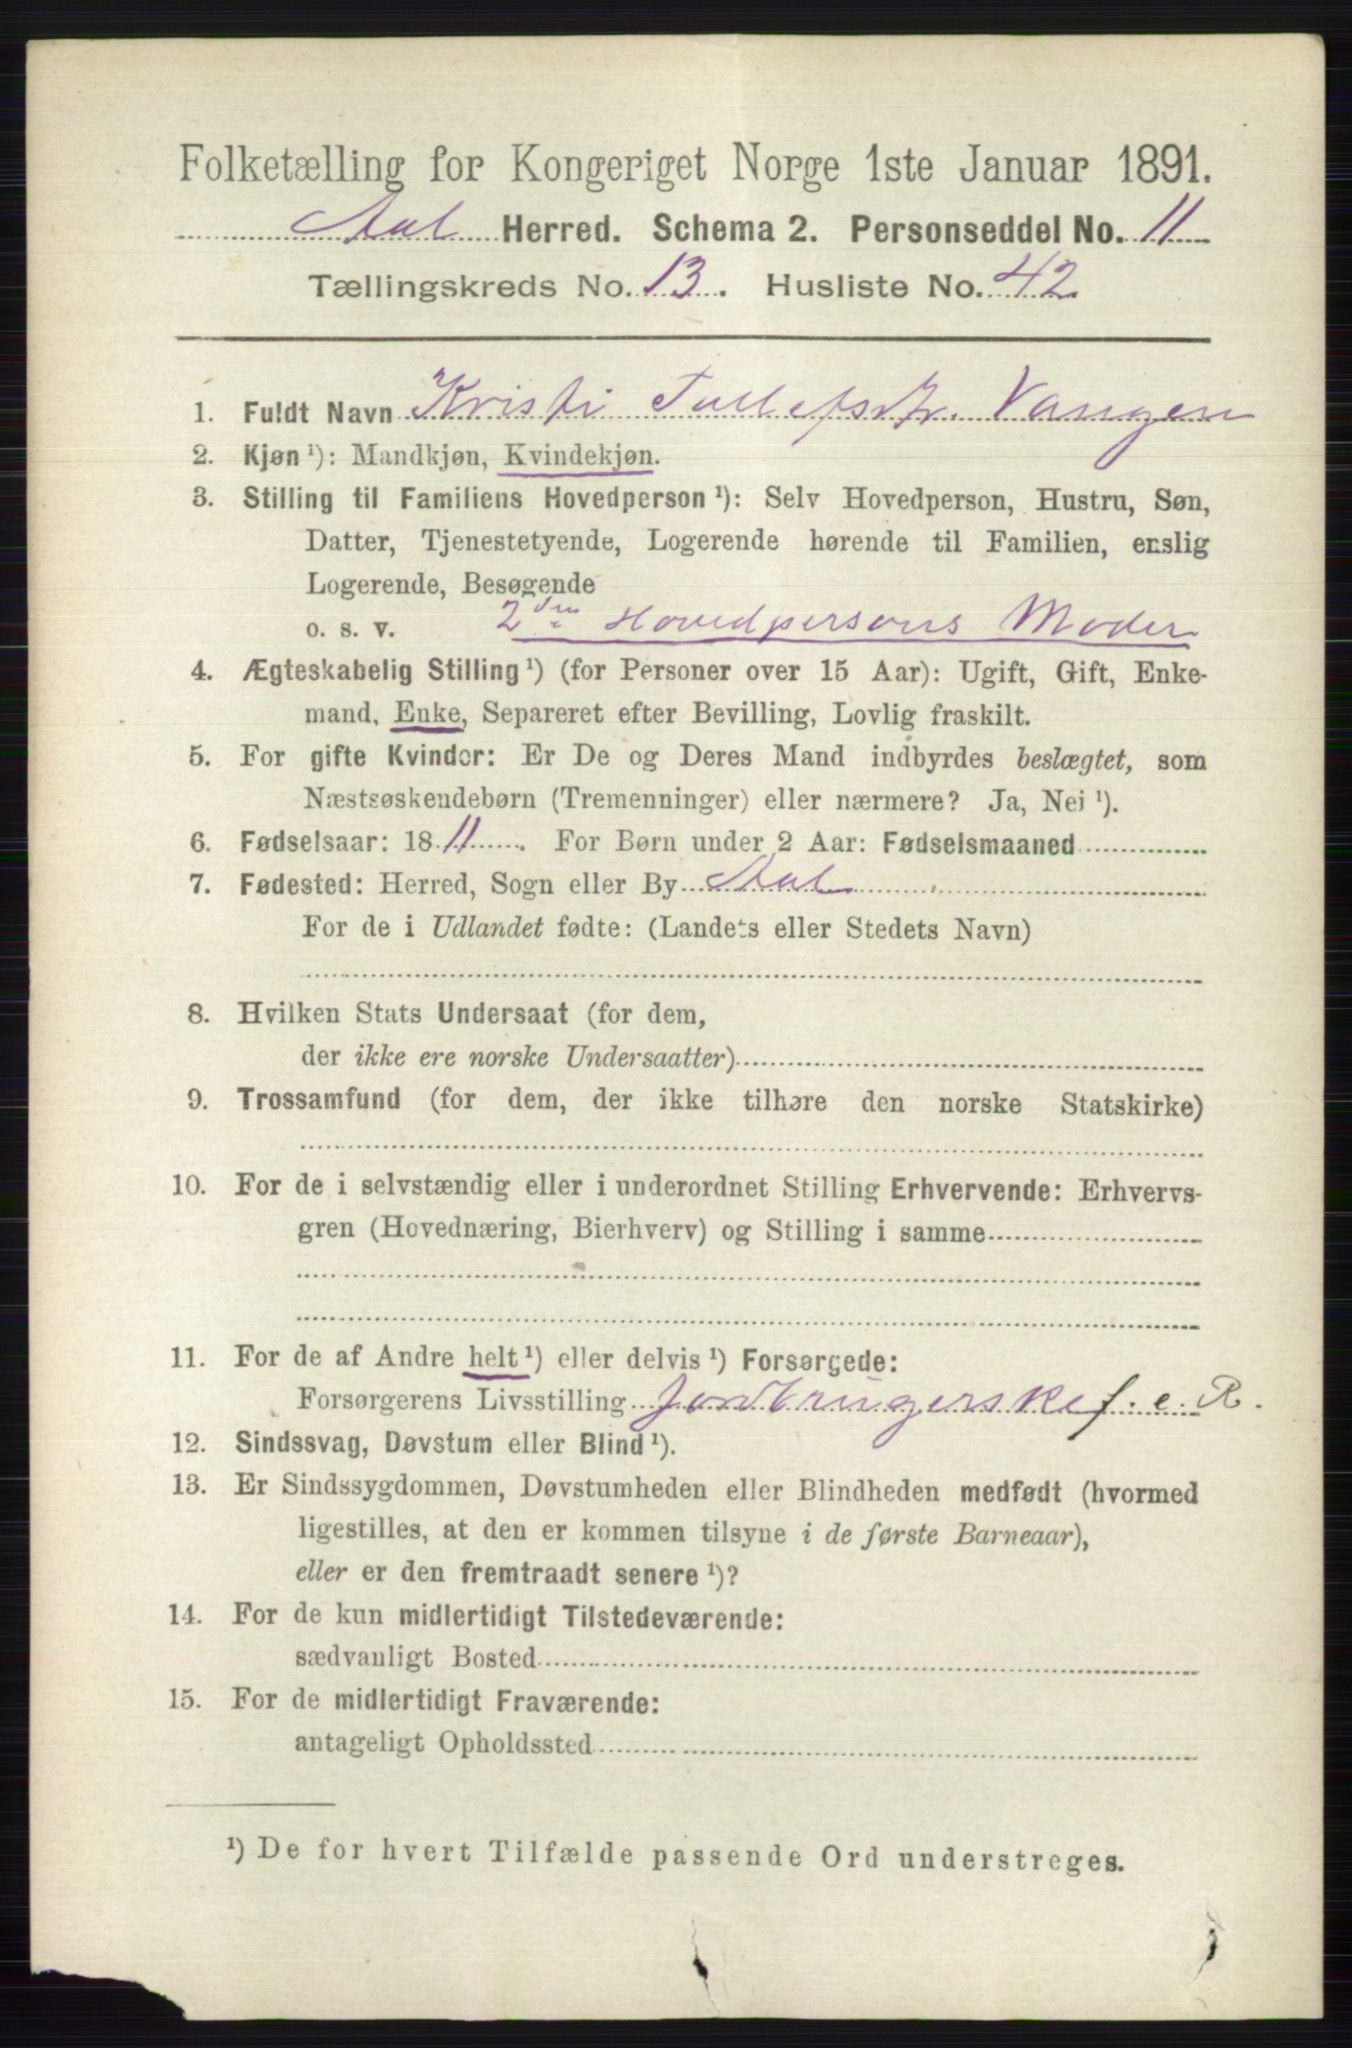 Folketælling for Kongeriget Norge 1ste Januar 1891.
Aal Herred. Schema 2. Personseddel No. 11
Tællingskreds No. 13. Husliste No. 42
1. Fuldt Navn Kristi Tollefsdtr. Vangen
2. Kjøn ¹): Mandkjøn, Kvindekjøn.
3. Stilling til Familiens Hovedperson ¹): Selv Hovedperson, Hustru, Søn,
Datter, Tjenestetyende, Logerende hørende til Familien, enslig
Logerende, Besøgende
o. s. v. 2den Hovedpersons Moder
4. Ægteskabelig Stilling ¹) (for Personer over 15 Aar): Ugift, Gift, Enke-
mand, Enke, Separeret efter Bevilling, Lovlig fraskilt.
5. For gifte Kvinder: Er De og Deres Mand indbyrdes beslægtet, som
Næstsøskendebørn (Tremenninger) eller nærmere? Ja, Nei ¹).
6. Fødselsaar: 1811. For Børn under 2 Aar: Fødselsmaaned
7. Fødested: Herred, Sogn eller By Aal
For de i Udlandet fødte: (Landets eller Stedets Navn)
8. Hvilken Stats Undersaat (for dem,
der ikke ere norske Undersaatter)
9. Trossamfund (for dem, der ikke tilhøre den norske Statskirke)
10. For de i selvstændig eller i underordnet Stilling Erhvervende: Erhvervs-
gren (Hovednæring, Bierhverv) og Stilling i samme
11. For de af Andre helt ¹) eller delvis ¹) Forsørgede:
Forsørgerens Livsstilling Jordbrugerske f. e. R.
12. Sindssvag, Døvstum eller Blind ¹).
13. Er Sindssygdommen, Døvstumheden eller Blindheden medfødt (hvormed
ligestilles, at den er kommen tilsyne i de første Barneaar),
eller er den fremtraadt senere ¹)?
14. For de kun midlertidigt Tilstedeværende:
sædvanligt Bosted
15. For de midlertidigt Fraværende:
antageligt Opholdssted
¹) De for hvert Tilfælde passende Ord understreges.